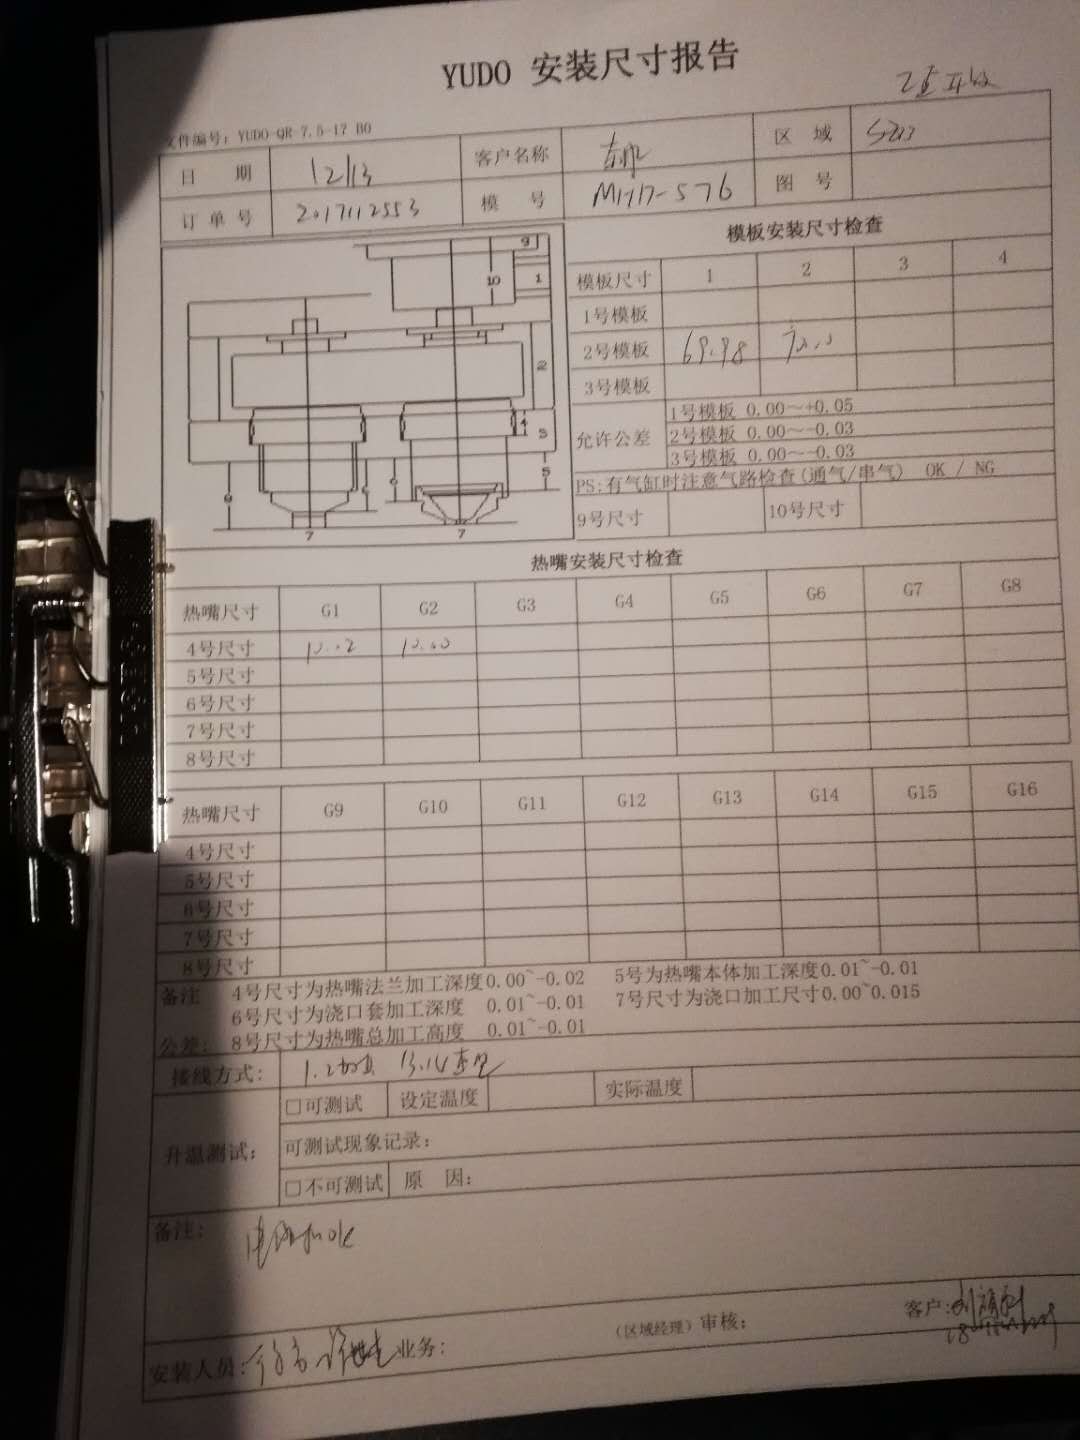 YUDO 安装尺寸报告
文件编号: YUDO-QR-7.5-17 B0
日 期 12/13 客户名称 区 域
订单号 2017112553 模 号 M1717-576 图 号
模板安装尺寸检查
模板尺寸 1 2 3 4
1号模板
2号模板 69.98 70.0
3号模板
允许公差 1号模板 0.00~+0.05
2号模板 0.00~-0.03
3号模板 0.00~-0.03
PS:有气缸时注意气路检查(通气/串气) OK / NG
9号尺寸 10号尺寸
9
10 1
2
4 3
6 5
7 7
热嘴安装尺寸检查
热嘴尺寸 G1 G2 G3 G4 G5 G6 G7 G8
4号尺寸 10.02 10.00
5号尺寸
6号尺寸
7号尺寸
8号尺寸
热嘴尺寸 G9 G10 G11 G12 G13 G14 G15 G16
4号尺寸
5号尺寸
6号尺寸
7号尺寸
8号尺寸
备注 4号尺寸为热嘴法兰加工深度0.00~-0.02 5号为热嘴本体加工深度0.01~-0.01
6号尺寸为浇口套加工深度 0.01~-0.01 7号尺寸为浇口加工尺寸0.00~0.015
公差: 8号尺寸为热嘴总加工高度 0.01~-0.01
接线方式:
升温测试: □可测试 设定温度 实际温度
可测试现象记录:
□不可测试 原 因:
备注:
安装人员: 业务: (区域经理)审核: 客户: